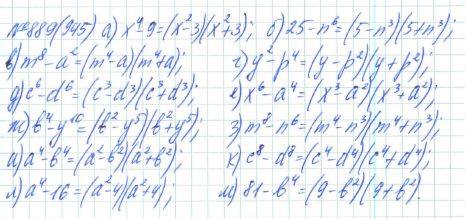 №889(945) а) x⁴-9=(x²-3)(x²+3); б) 25-n⁶=(5-n³)(5+n³);
в) m⁸-a²=(m⁴-a)(m⁴+a); г) y²-p⁴=(y-p²)(y+p²);
д) c⁶-d⁶=(c³-d³)(c³+d³); е) x⁶-a⁴=(x³-a²)(x³+a²);
ж) b⁴-y¹⁰=(b²-y⁵)(b²+y⁵); з) m⁸-n⁶=(m⁴-n³)(m⁴+n³);
и) a⁴-b⁴=(a²-b²)(a²+b²); к) c⁸-d⁸=(c⁴-d⁴)(c⁴+d⁴);
л) a⁴-16=(a²-4)(a²+4); м) 81-b⁴=(9-b²)(9+b²).